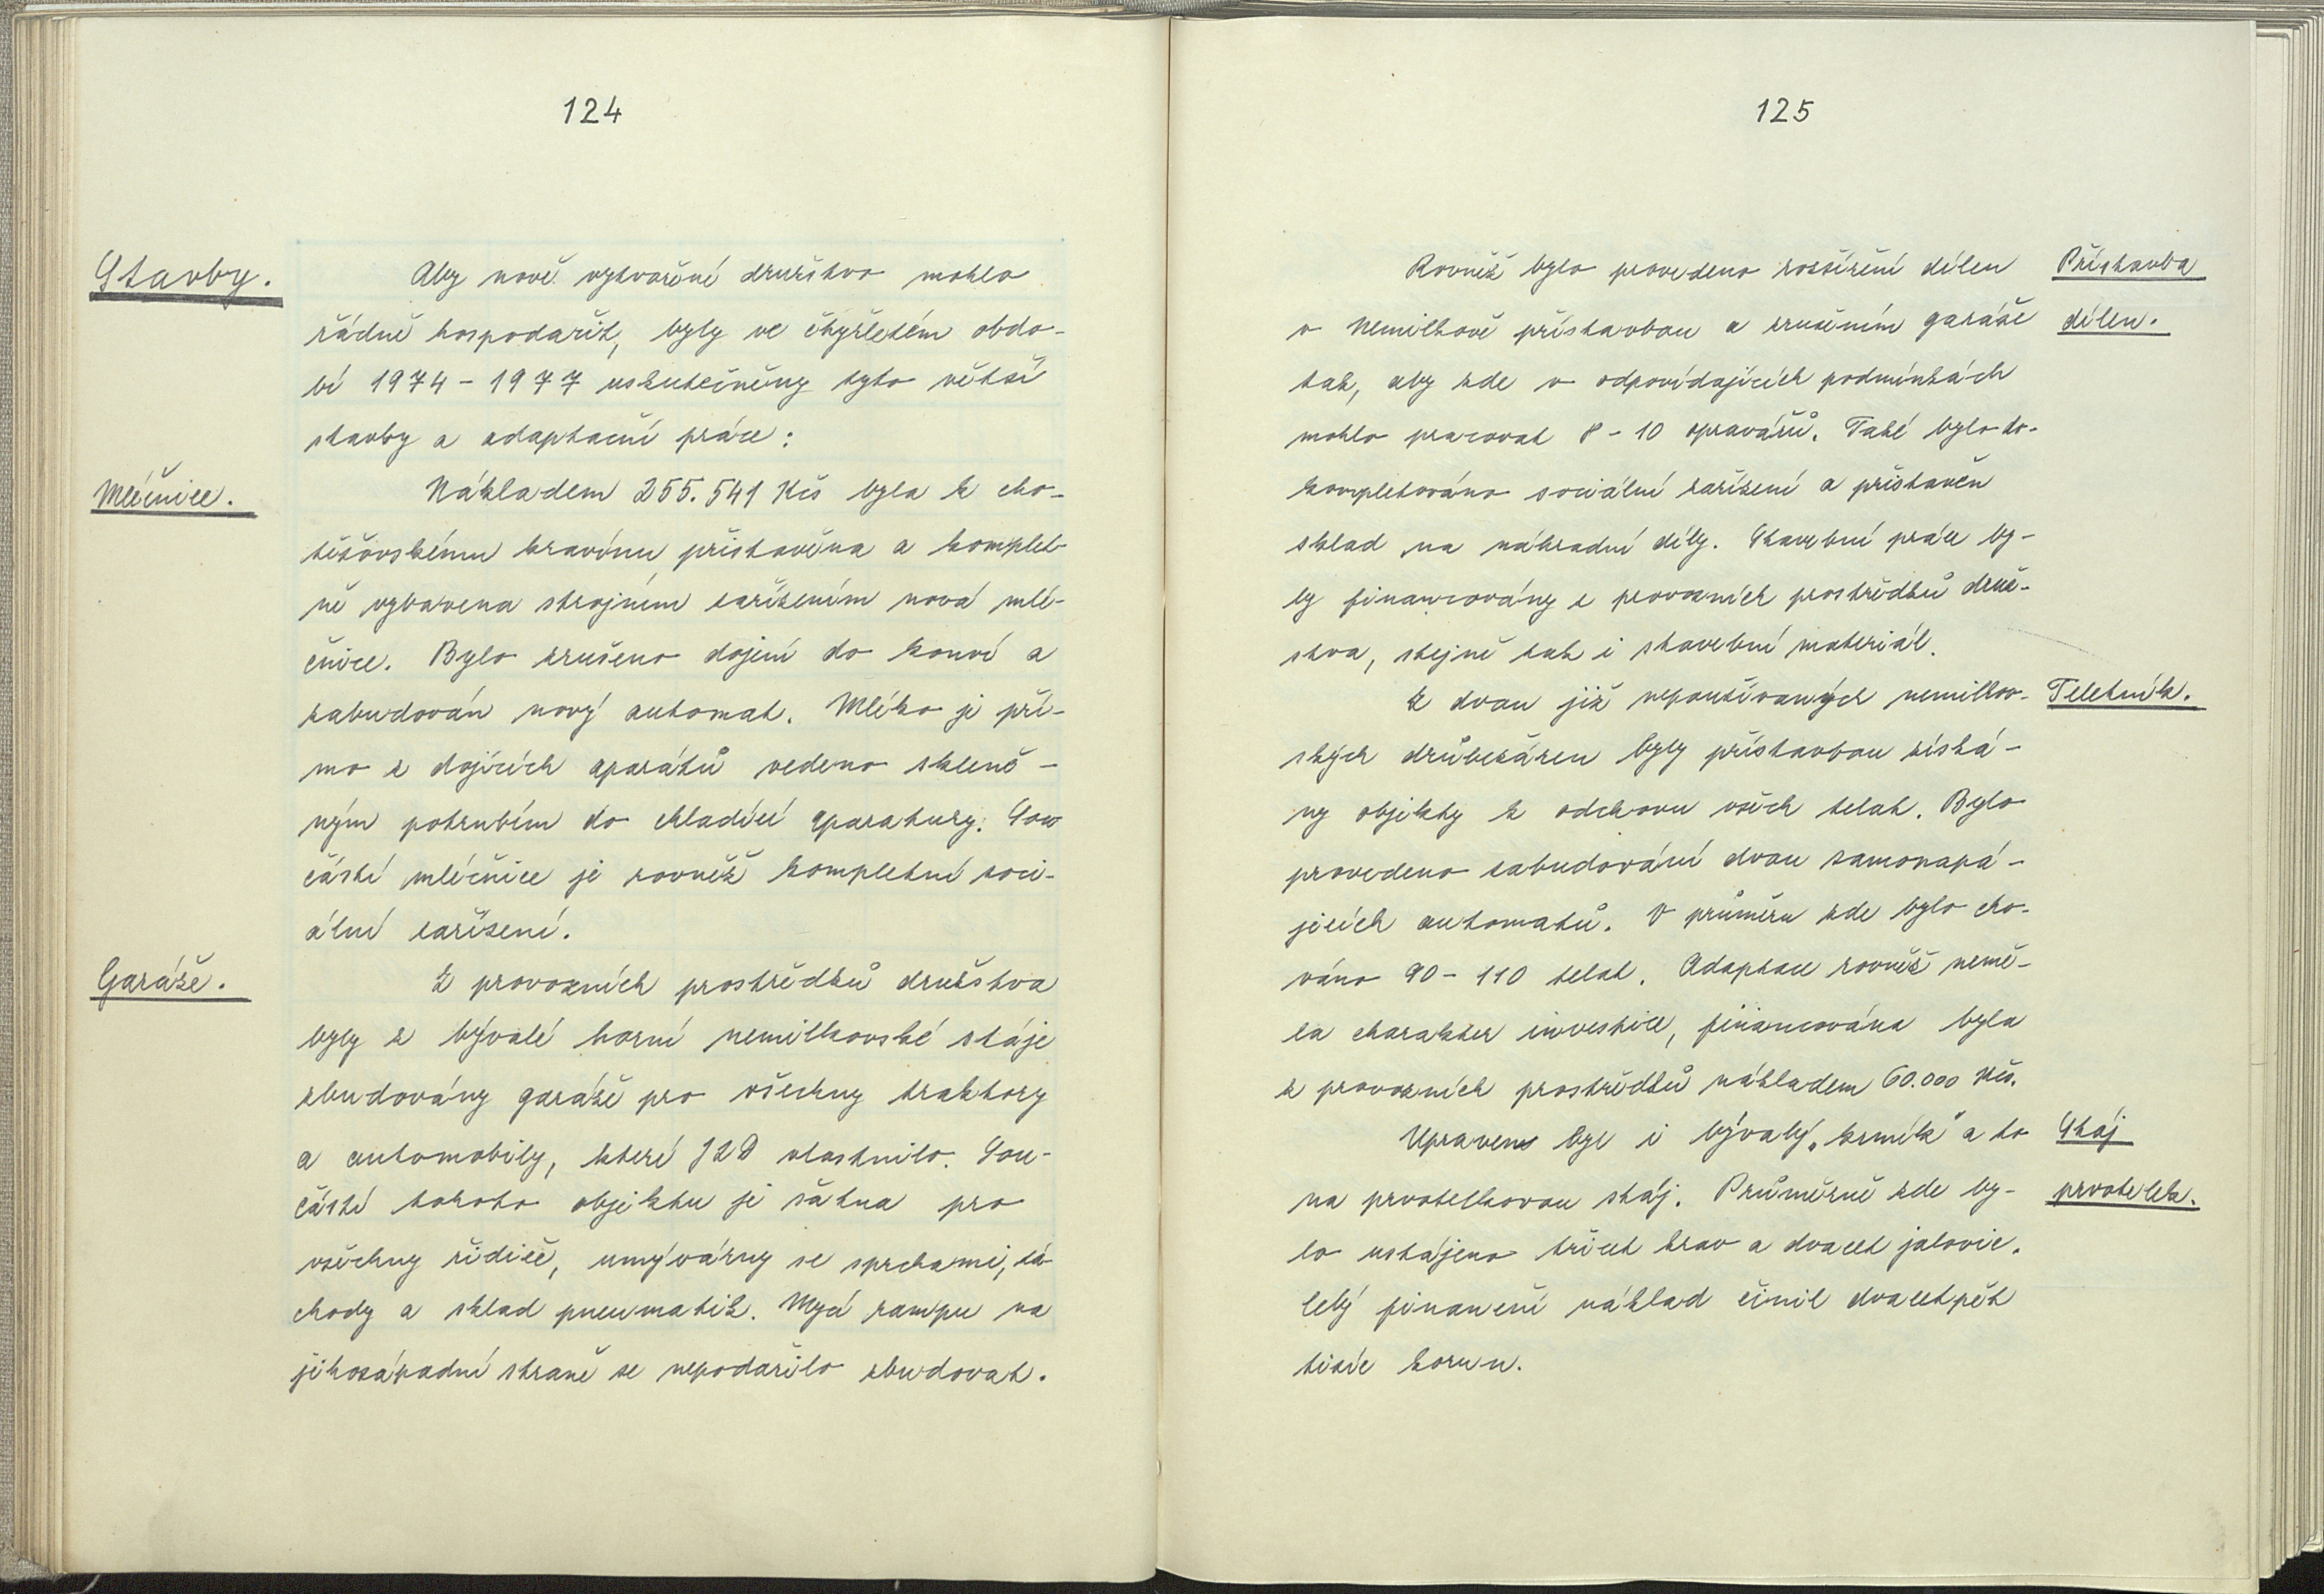 124
Stavby.
Aby nově vytvořené družstvo mohlo
řádně hospodařit, byly ve čtyřletém obdo-
bí 1974 - 1977 uskutečněny tyto větší
stavby a adaptační práce:
Mléčnice.
Nákladem 255.541 Kčs byla k cho-
těšovskému kravínu přistavěna a komplet-
ně vybavena strojním zařízením nová mlé-
čnice. Bylo zrušeno dojení do konví a
zabudován nový automat. Mléko je pří-
mo z dojících aparátů vedeno skleně-
ným potrubím do chladící aparatury. Sou
částí mléčnice je rovněž kompletní soci-
ální zařízení.
Garáže.
Z provozních prostředků družstva
byly z bývalé horní nemilkovské stáje
zbudovány garáže pro všechny traktory
a automobily, které JZD vlastnilo. Sou-
částí tohoto objektu je šatna pro
všechny řidiče, umývárny se sprchami, zá-
chody a sklad pneumatik. Mycí rampu na
jihozápadní straně se nepodařilo zbudovat.
125
Rovněž bylo provedeno rozšíření dílen
v Nemilkově přístavbou a zrušením garáže
tak, aby zde v odpovídajících podmínkách
mohlo pracovat 8 - 10 opravářů. Také bylo do-
kompletováno sociální zařízení a přistavěn
sklad na náhradní díly. Stavební práce by-
ly financovány z provozních prostředků druž-
stva, stejně tak i stavební materiál.
Přístavba
dílen.
Z dvou již nepoužívaných nemilkov-
ských drůbežáren byly přístavbou získá-
ny objekty k odchovu všech telat. Bylo
provedeno zabudování dvou samonapá-
jecích automatů. V průměru zde bylo cho-
váno 90 - 110 telat. Adaptace rovněž nemě-
la charakter investice, financována byla
z provozních prostředků nákladem 60.000 Kčs.
Teletník.
Upraven byl i bývalý „krmík" a to
na prvotelkovou stáj. Průměrně zde by-
lo ustájeno třicet krav a dvacet jalovic.
Celý finanční náklad činil dvacetpět
tisíc korun.
Stáj
prvotelek.